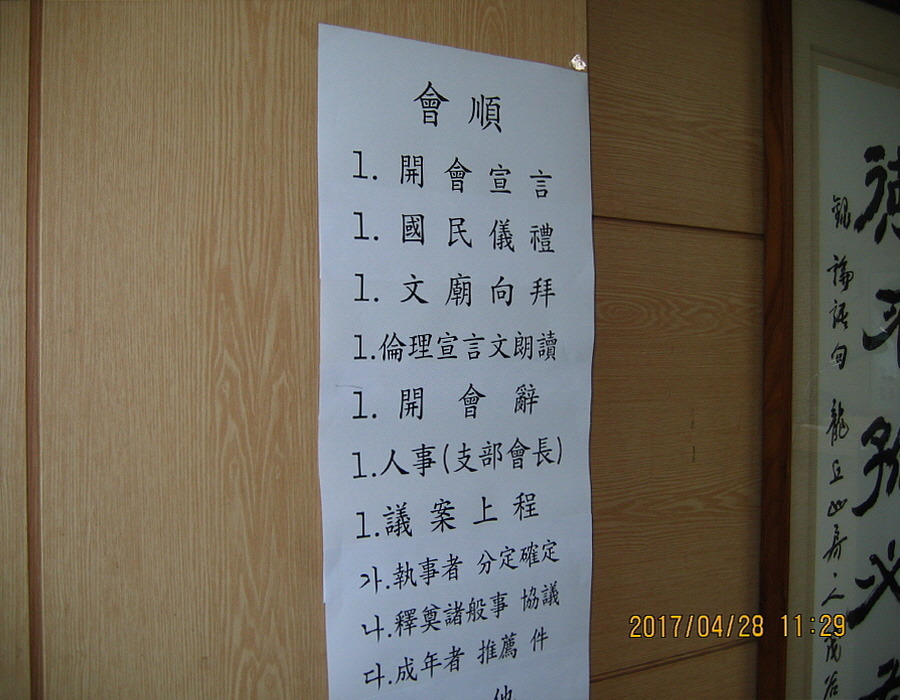 會順
1. 開會宣言
1. 國民儀禮
1. 文廟向拜
1.倫理宣言文朗讀
1. 開會辭
1.人事(支部會長)
1.議案上程
가.執事者 分定確定
나.釋奠諸般事 協議
다.成年者 推薦 件
他
論語句 龍丘山房人
2017/04/28 11:29